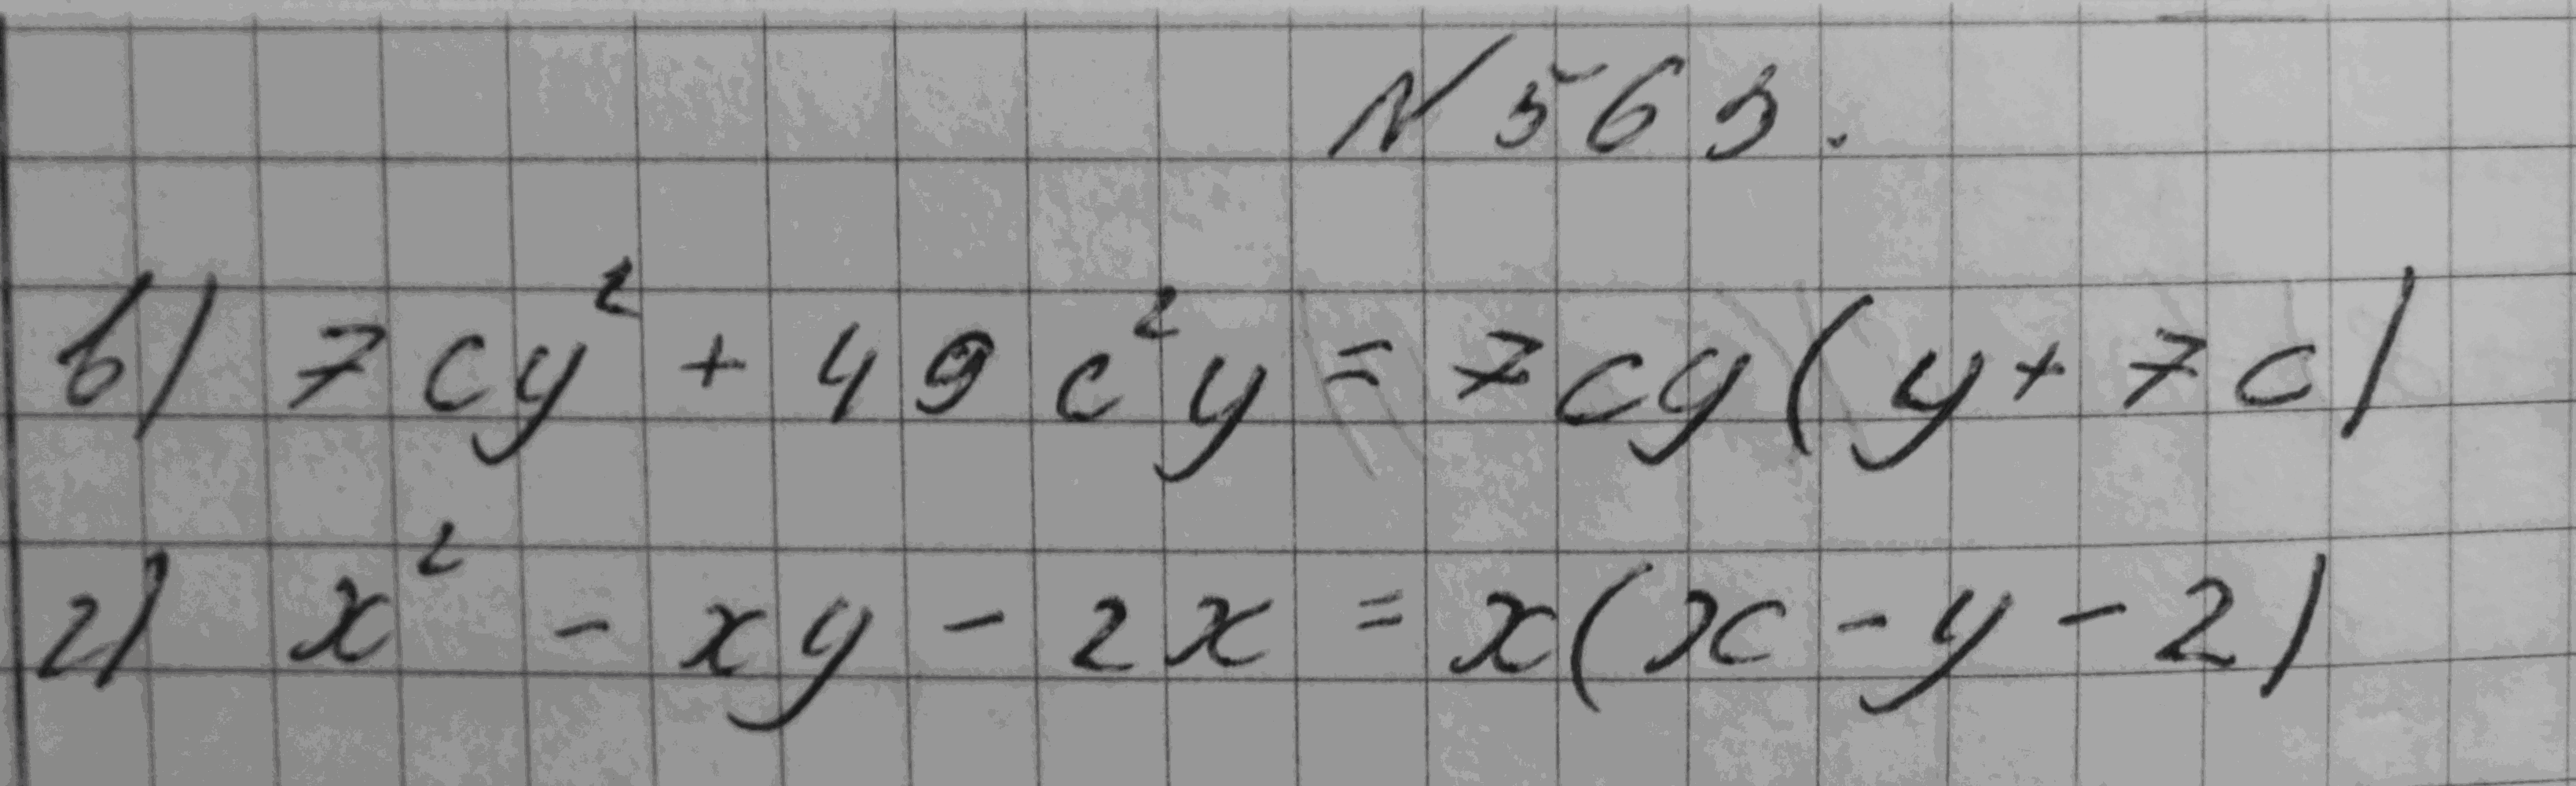 № 563.
в) 7cy² + 49c²y = 7cy(y + 7c)
г) x² - xy - 2x = x(x - y - 2)